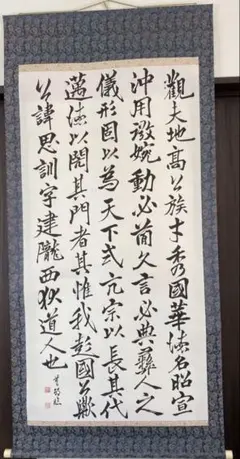 觀夫地高公族才秀國華德名昭宣
沖用微婉動必簡久言必典彝人之
儀形固以為天下式亢宗以長其代
邁德以閎其門者其惟我彭國公歟
公諱思訓字建隴西狄道人也